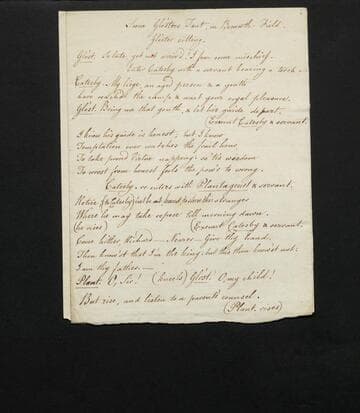 Scene Gloster's Tent, in Bosworth Field.
Gloster sitting.
Glost. So late, yet not arriv'd. I fear some mischief.
Enter Catesby with a servant bearing a torch.
Catesby. My liege, an aged person & a youth
have reach'd the camp & wait your royal pleasure.
Glost. Bring me that youth, & let his guide depart.
(Exeunt Catesby & servant.
I know his guide is honest; but I know
Temptation ever watches the frail hour
To take poor Virtue napping: so tis wisdom
To wrest from honest fools the pow'r to wrong.
Catesby re-enters with Plantagenet & servant.
Notice (to Catesby) provide this stranger
Where he may take repose till morning dawn.
(he rises) (Exeunt Catesby & servant.
Come hither, Richard — Nearer — Give thy hand.
Thou know'st that I'm the king; but this thou knowst not:
I am thy father. —
Plant. O, Sir! (kneels) Glost. O, my child!
But rise, and listen to a parent's counsel.
(Plant. rises)